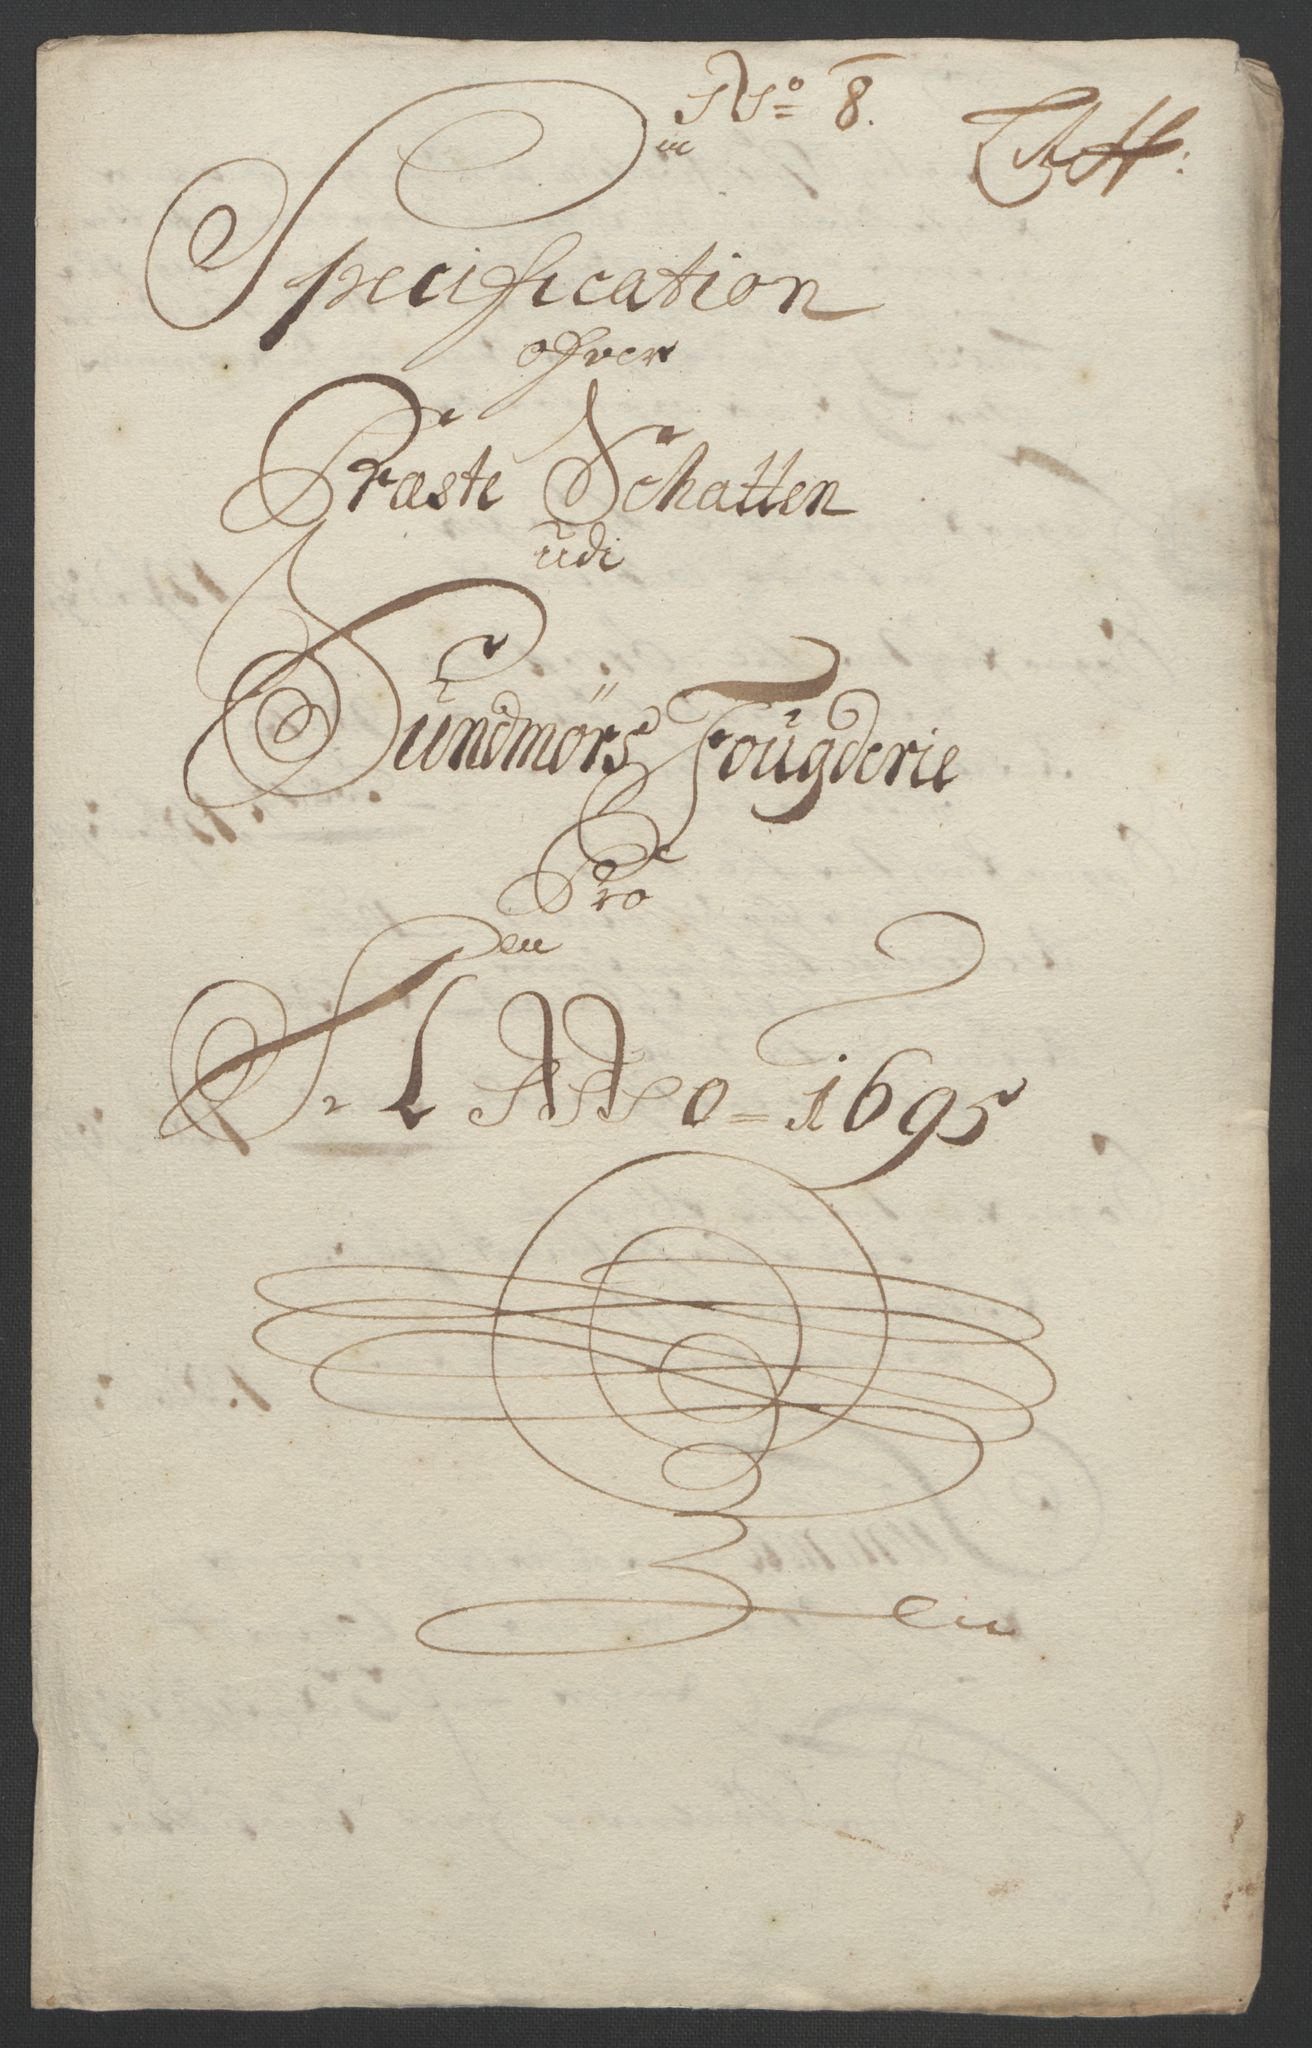 No 8.
Specification
ofver
Præste Schatten
udi
Sundmørs Fougderie
Pro
ANNO = 1695